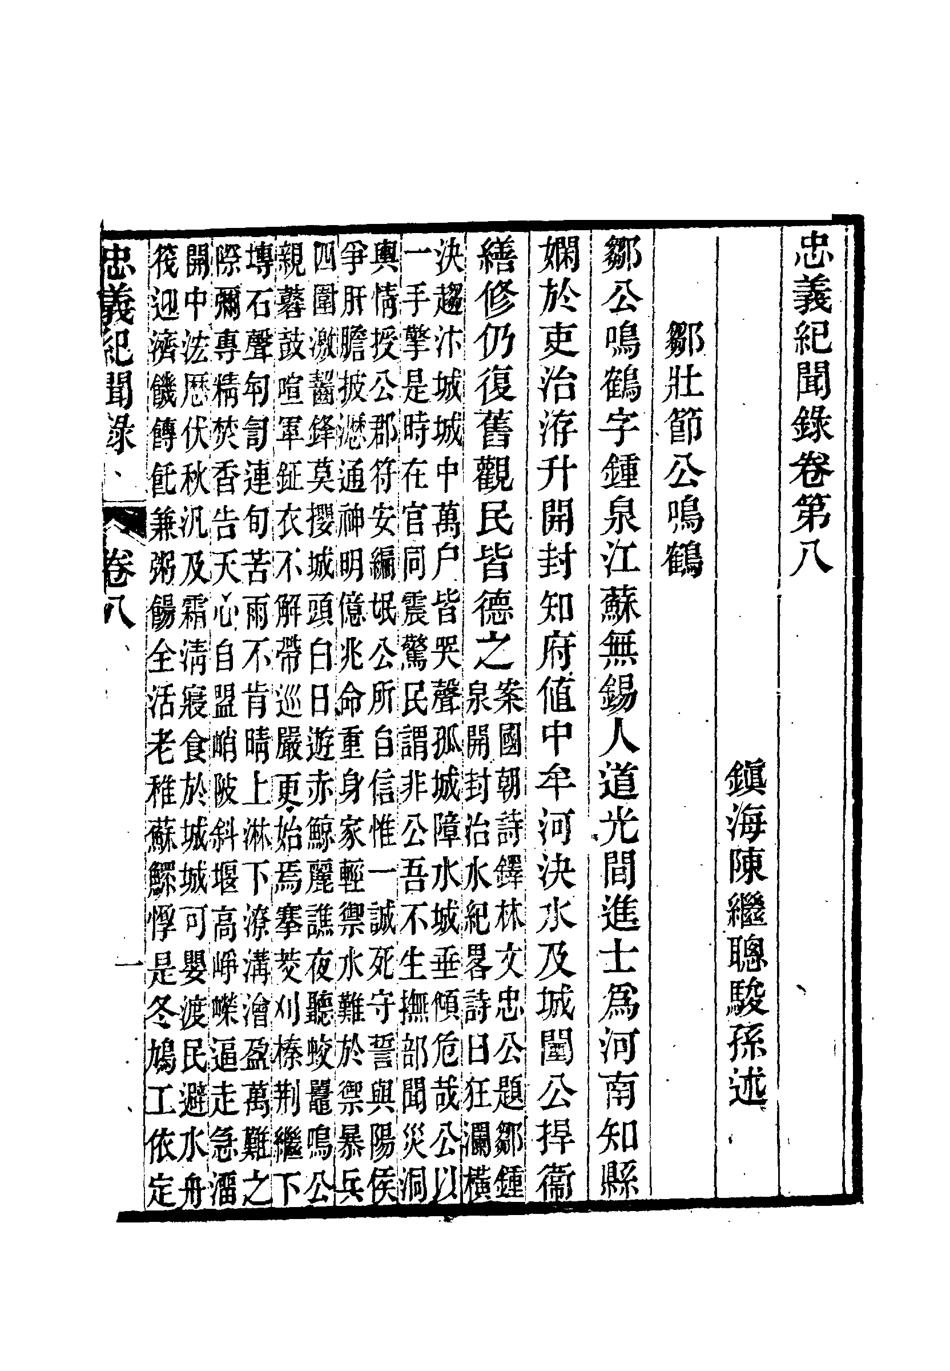 忠義紀聞錄卷第八
鎮海陳繼聰駿孫述
鄒壯節公鳴鶴
鄒公鳴鶴字鍾泉江蘇無錫人道光間進士爲河南知縣
嫻於吏治洊升開封知府値中牟河決水及城闉公捍衞
繕修仍復舊觀民皆德之案國朝詩鐸林文忠公題鄒鍾
泉開封治水紀畧詩曰狂瀾橫
決趨汴城城中萬户皆哭聲孤城障水城垂傾危哉公以
一手擎是時在官同震驚民謂非公吾不生撫部聞災洞
輿情授公郡符安編氓公所自信惟一誠死守誓與陽侯
爭肝膽披瀝通神明億兆命重身家輕禦水難於禦暴兵
四圍激齧鋒莫攖城頭白日遊赤鯨麗譙夜聽蛟鼉鳴公
親鼛鼓喧軍鉦衣不解帶巡嚴更始焉搴茭刈榛荆繼下
塼石聲匉訇連旬苦雨不肯晴上淋下潦溝澮盈萬難之
際彌專精焚香告天心自盟峭陂斜堰高崢嶸逼走急溜
開中泓厯伏秋汛及霜清寢食於城城可嬰渡民避水舟
筏迎濟饑餺飥兼粥餳全活老稚蘇鰥惸是冬鳩工依定
忠義紀聞錄 卷八 一